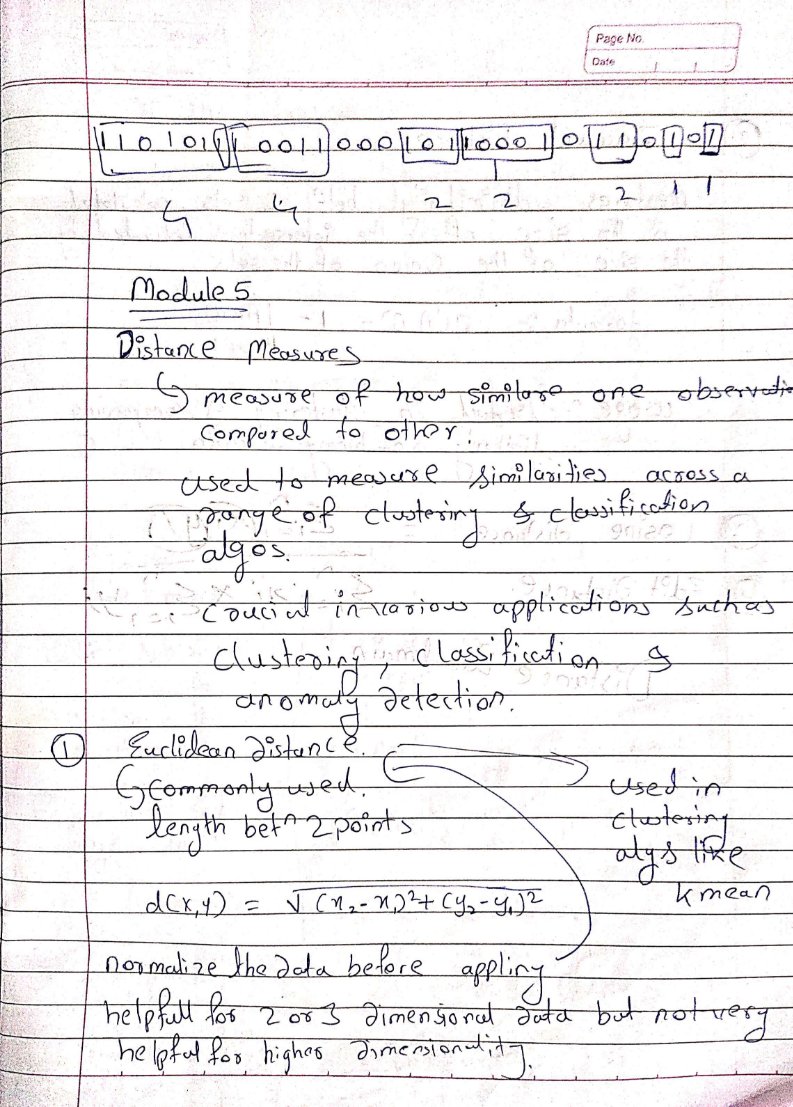 Page No.
Date
1 1 0 1 0 1 1 1 0 0 1 1 0 0 0 1 0 1 1 0 0 0 1 0 1 1 0 1 0 1
4 4 2 2 2 1 1
Module 5
Distance Measures
↳ measure of how similare one observatio
compared to other.
used to measure similarities across a
range of clustering & classification
algos.
crucial in various applications such as
clustering, classification &
anomaly detection.
① Euclidean distance.
↳ commonly used.
length betⁿ 2 points
used in
clustering
algs like
k mean
d(x,y) = √(x₂-x₁)²+(y₂-y₁)²
normalize the data before appling
helpfull for 2 or 3 dimensional data but not very
helpful for higher dimensionality.